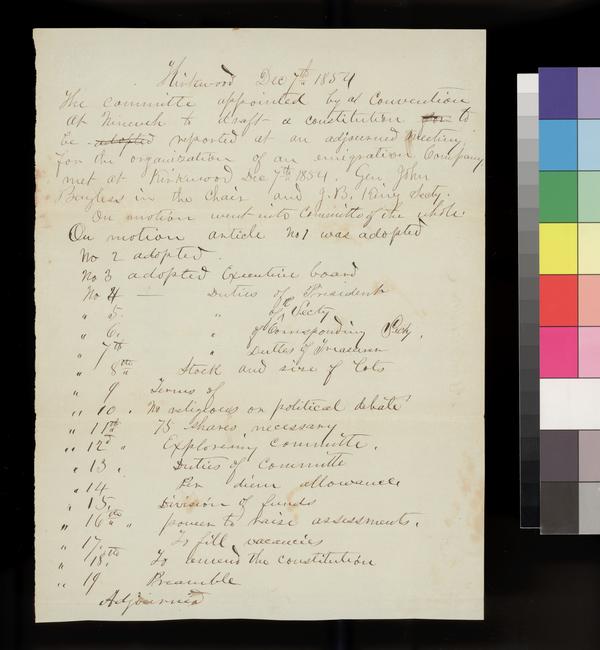 Kirkwood Dec 7th 1854
The committe appointed by a Convention
at Nineveh to draft a constitution for to
be adopted reported at an adjourned Meeting
for the organization of an emigration Company
met at Kirkwood Dec 7th 1854. Gen John
Bayless in the Chair and J.B. King Secty.
On motion went into Committe of the whole
On motion article No 1 was adopted
No 2 adopted.
No 3 adopted Executive board
No 4 — Duties of President
" 5. " of Secty
" 6. " of Corrisponding Secty.
" 7th " Duties of Treasurer
" 8th " Stock and size of Lots
" 9 Terms of
" 10. No religious or political debate
" 11th 75 shares necessary
" 12th " Exploreing Committe.
" 13. Duties of Committe
" 14 Per diem allowance
" 15. Division of funds
" 16th " power to raise assessments.
" 17. To fill vacancies
" 18th To amend the constitution
" 19 Preamble
Adjourned